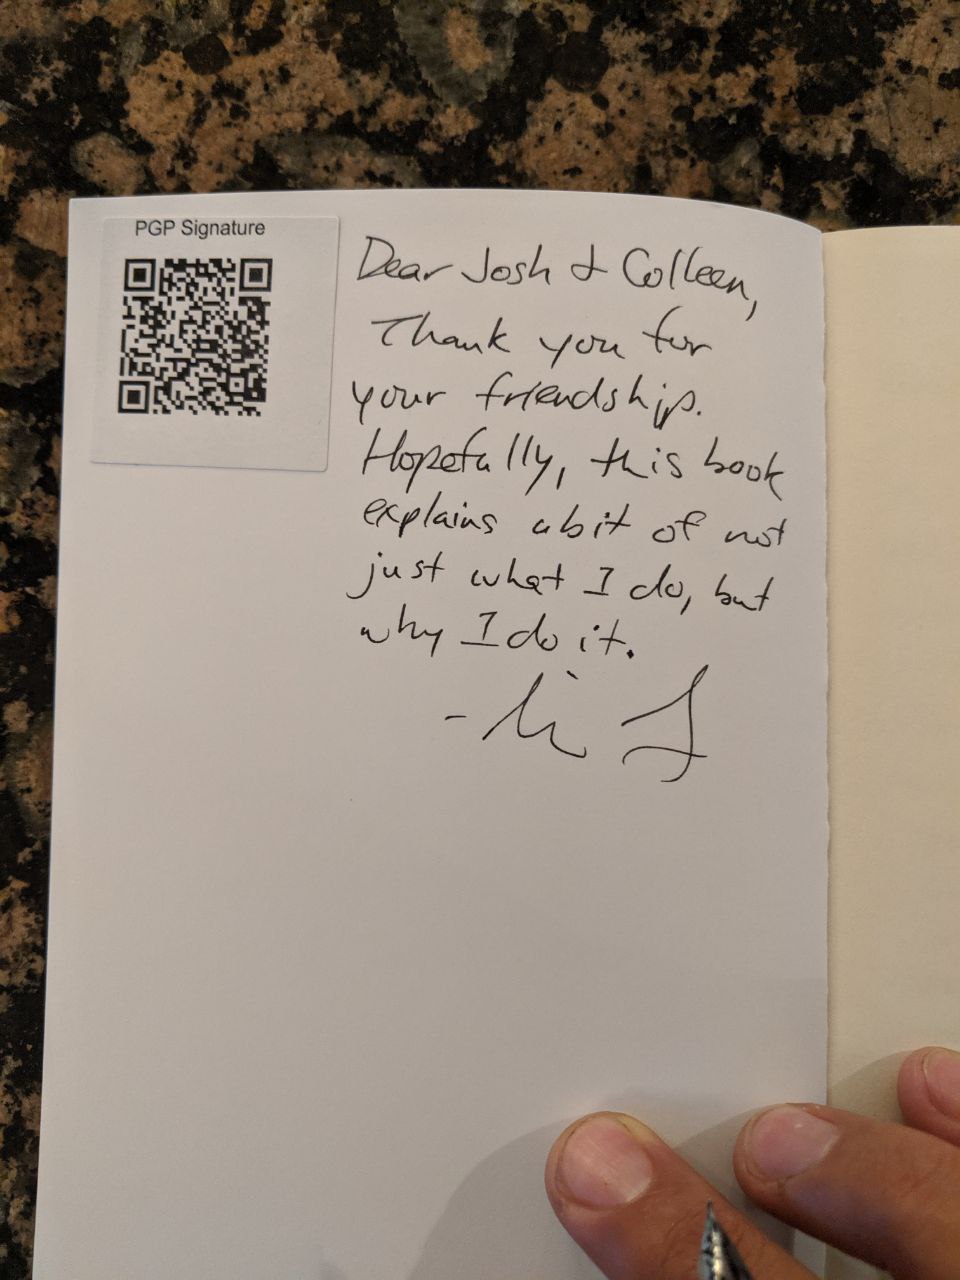 PGP Signature
Dear Josh & Colleen,
Thank you for
your friendship.
Hopefully, this book
explains a bit of not
just what I do, but
why I do it.